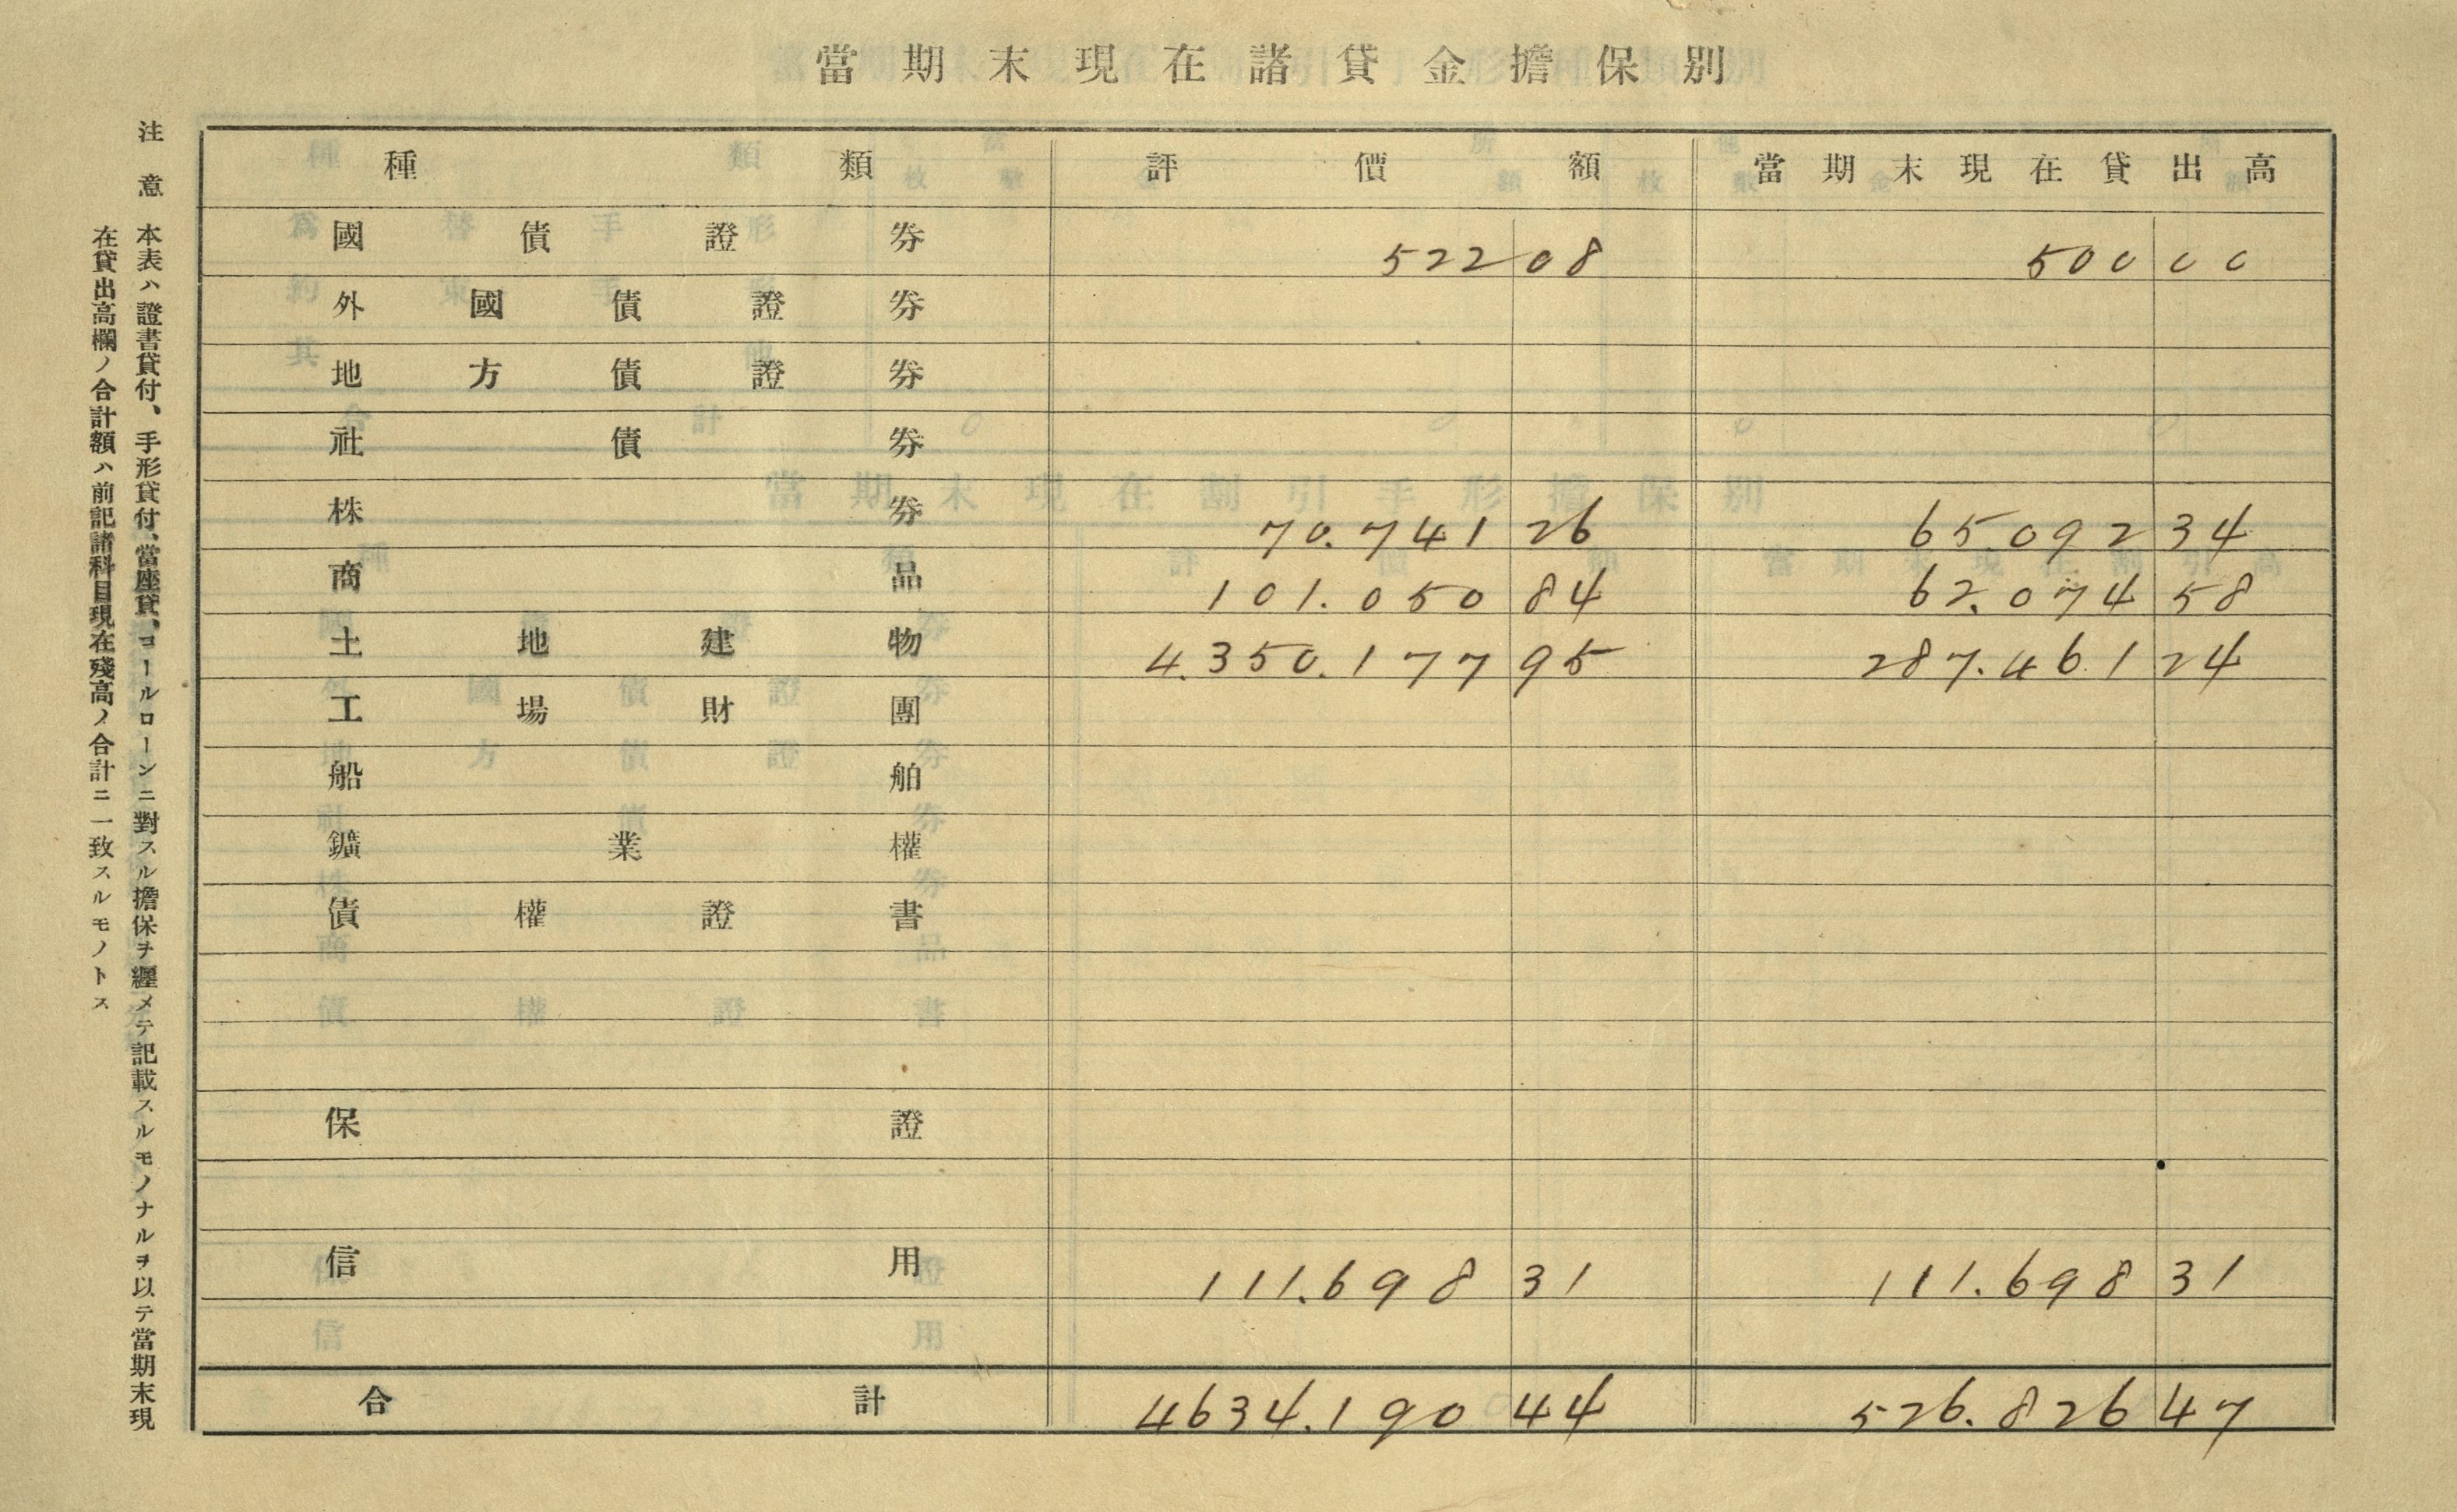 當期末現在諸貸金擔保別
種類 評價額 當期末現在貸出高
國債證券 522 08 500 00
外國債證券
地方債證券
社債券
株券 70.741 26 65.092 34
商品 101.050 84 62.074 58
土地建物 4.350.177 95 287.461 24
工場財團
船舶
鑛業權
債權證書
保證
信用 111.698 31 111.698 31
合計 4634.190 44 526.826 47
注意 本表ハ證書貸付、手形貸付、當座貸、コールローンニ對スル擔保ヲ纒メテ記載スルモノナルヲ以テ當期末現
在貸出高欄ノ合計額ハ前記諸科目現在殘高ノ合計ニ一致スルモノトス